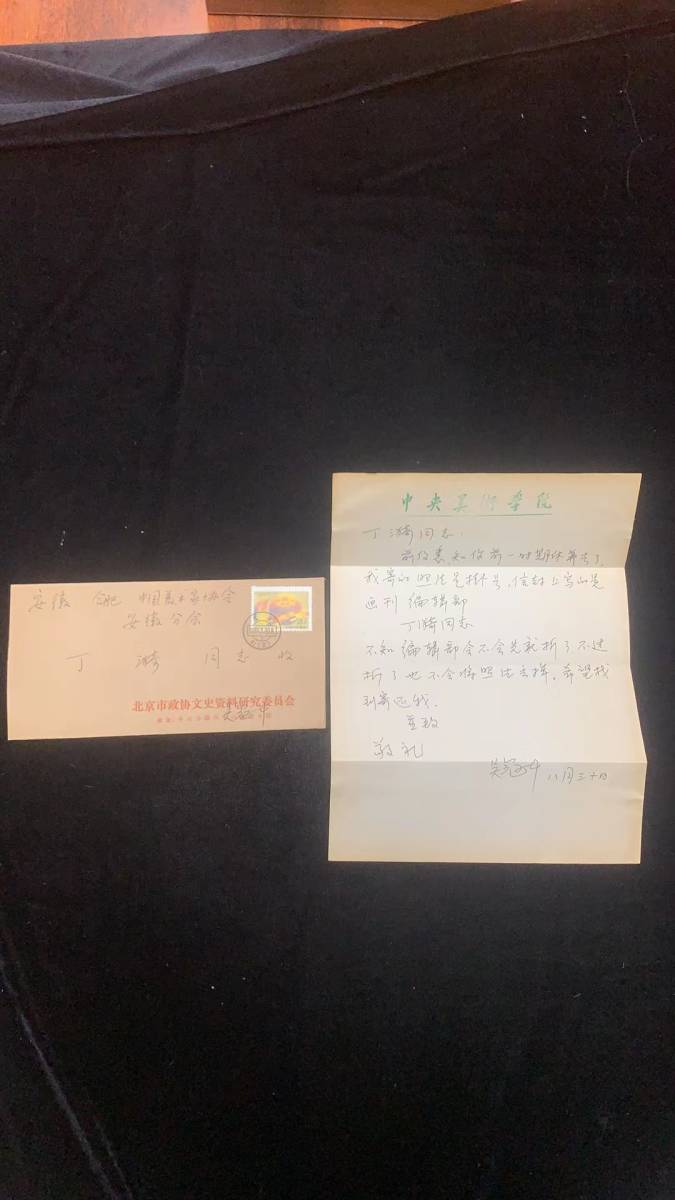 安徽 合肥 中国美术家协会
安徽分会
丁 漪 同志 收
北京市政协文史资料研究委员会
中央美術学院
丁漪同志.
前仅表, 知你前一时期休养去了,
我寄的照片是挂号, 信封上写的是
画刊 编辑部
丁漪同志
不知编辑部会不会先就拆了不过
拆了也不会将照片丢掉, 希望找
到寄还我.
并致
敬礼
八月三十日